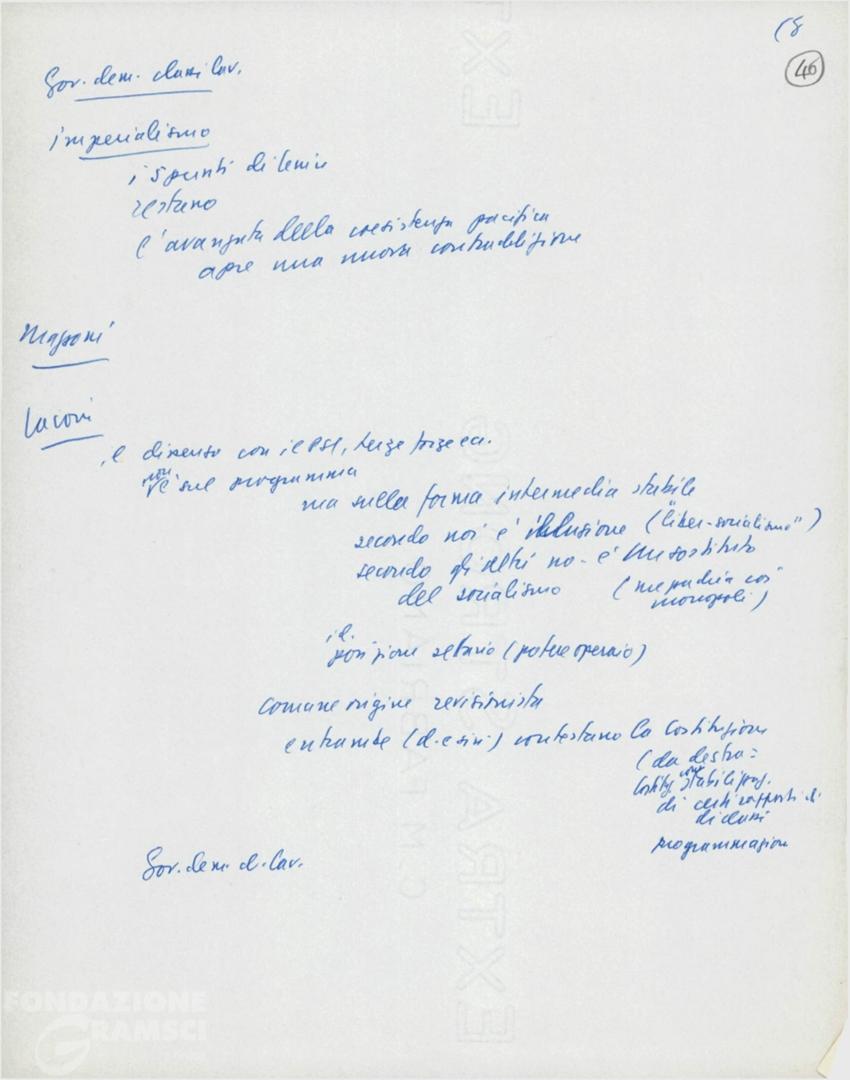 18
46
Gov. dem. classi lav.
imperialismo
i 5 punti di Lenin
restano
l'avanzata della coesistenza pacifica
apre una nuova contraddizione
Masoni
Laconi
il dissenso con il PSI, terze forze ecc.
non è sul programma
ma sulla forma intermedia stabile
secondo noi è illusione ("liber-socialismo")
secondo gli altri no - è un sostituto
del socialismo (
monopoli)
id.
posizione settario (potere operaio)
comune origine revisionista
entrambe (d. e sin.) contestano la Costituzione
(da destra =
Costituz. come stabilizzaz.
di certi rapporti di
di classi
programmazione
Gov. dem. d. lav.
FONDAZIONE
GRAMSCI
EXTRA STRONG
G. M. FABRIANO